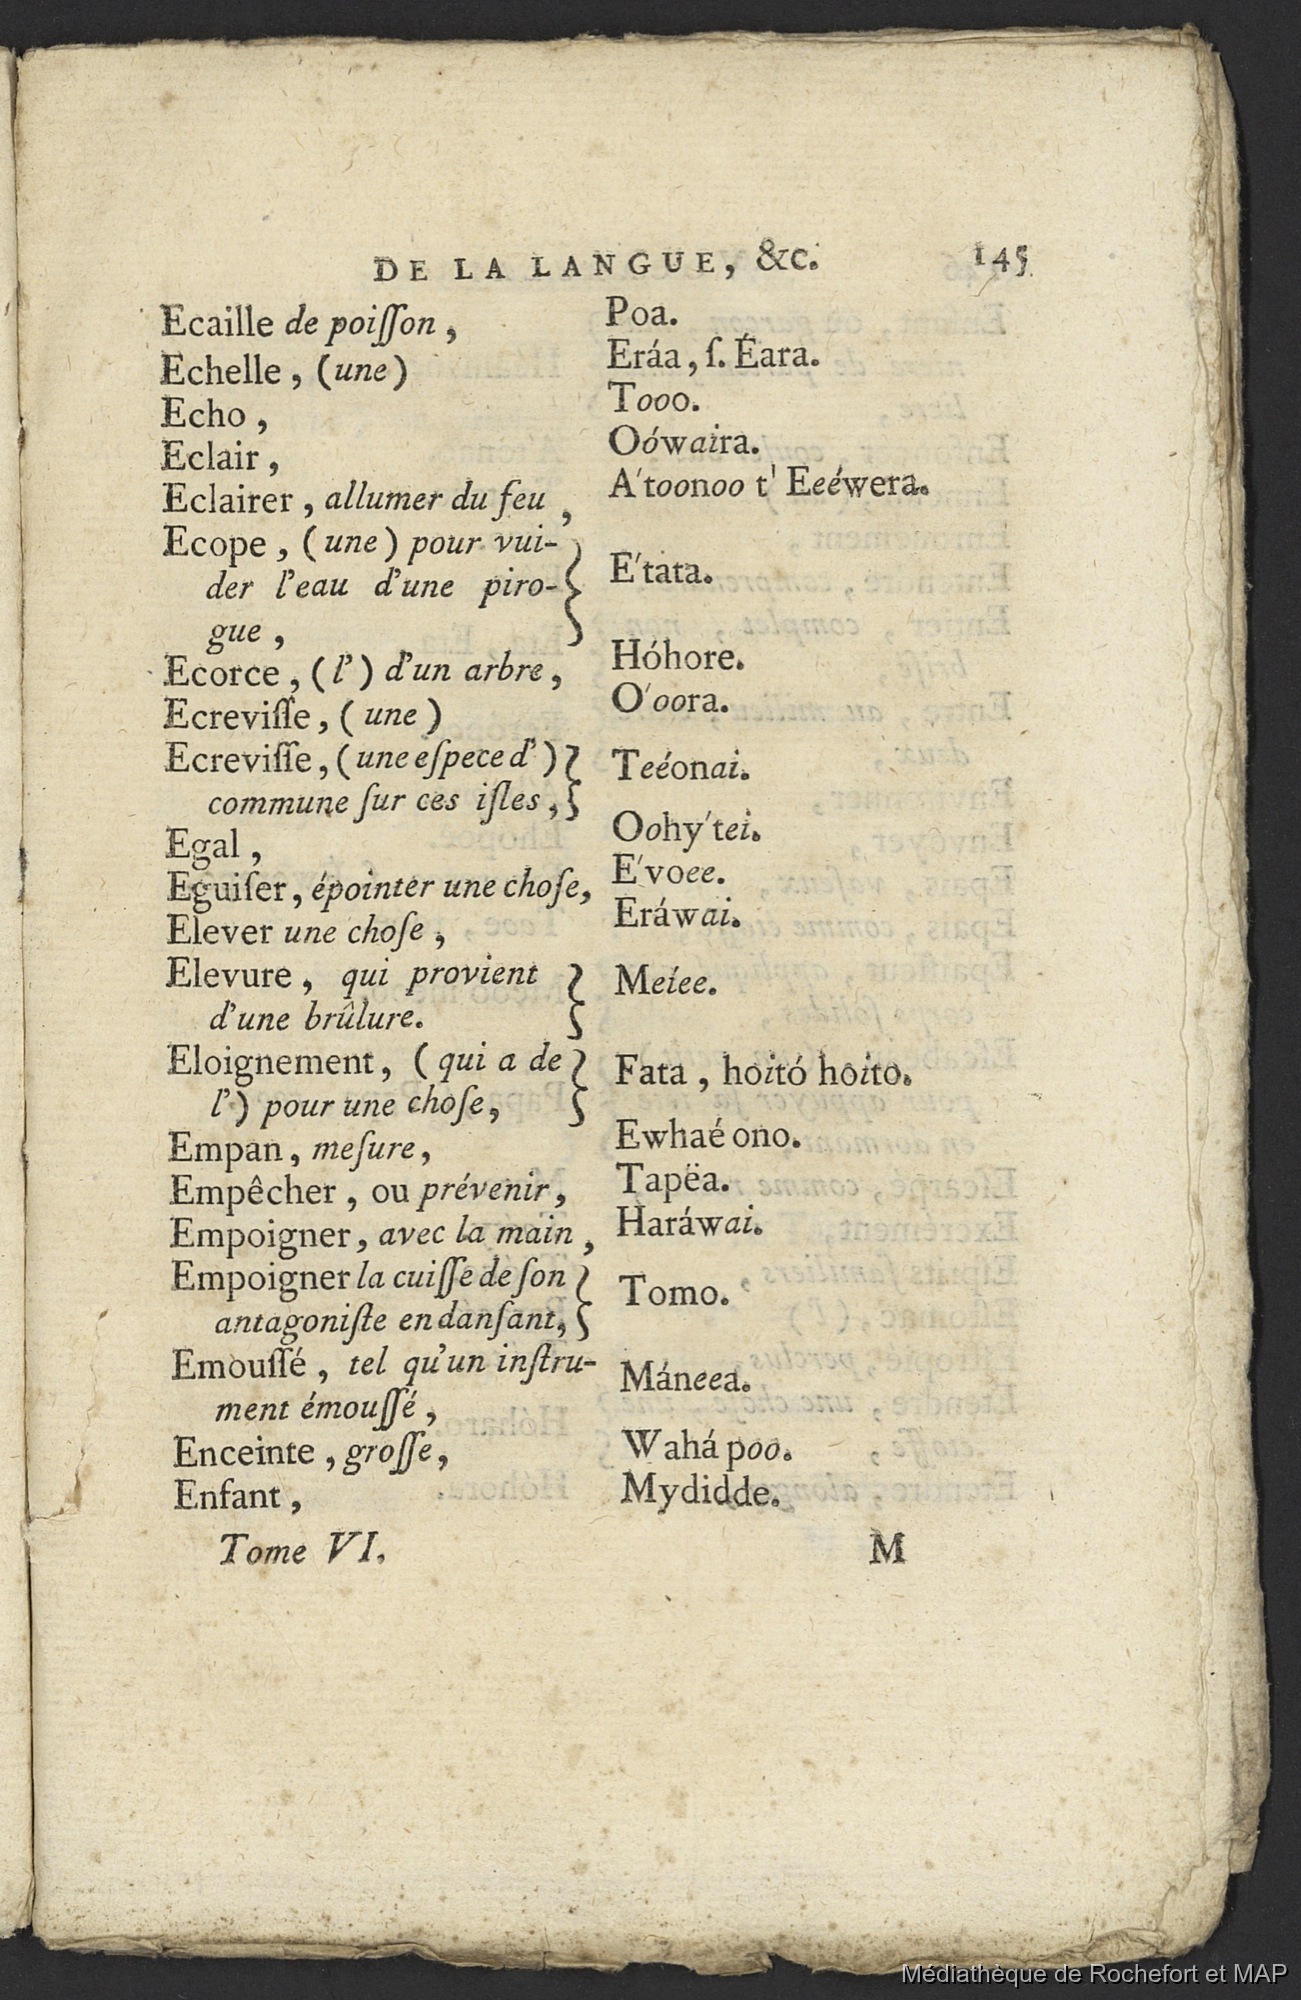 DE LA LANGUE, &c. 145
Ecaille de poiſſon, Poa.
Echelle, (une) Eráa, ſ. Éara.
Echo, Tooo.
Eclair, Oówaira.
Eclairer, allumer du feu, A'toonoo t' Eeéwera.
Ecope, (une) pour vui-
der l'eau d'une piro- E'tata.
gue,
Ecorce, (l') d'un arbre, Hóhore.
Ecreviſſe, (une) O'oora.
Ecreviſſe, (une eſpece d') Teéonai.
commune ſur ces iſles,
Egal, Oohy'tei.
Eguiſer, épointer une choſe, E'voee.
Elever une choſe, Eráwai.
Elevure, qui provient Meíee.
d'une brûlure.
Eloignement, (qui a de Fata, hoitó hoito.
l') pour une choſe,
Empan, meſure, Ewhaé ono.
Empêcher, ou prévenir, Tapëa.
Empoigner, avec la main, Haráwai.
Empoigner la cuiſſe de ſon Tomo.
antagoniſte en danſant,
Emouſſé, tel qu'un inſtru- Máneea.
ment émouſſé,
Enceinte, groſſe, Wahá poo.
Enfant, Mydidde.
Tome VI. M
Médiathèque de Rochefort et MAP